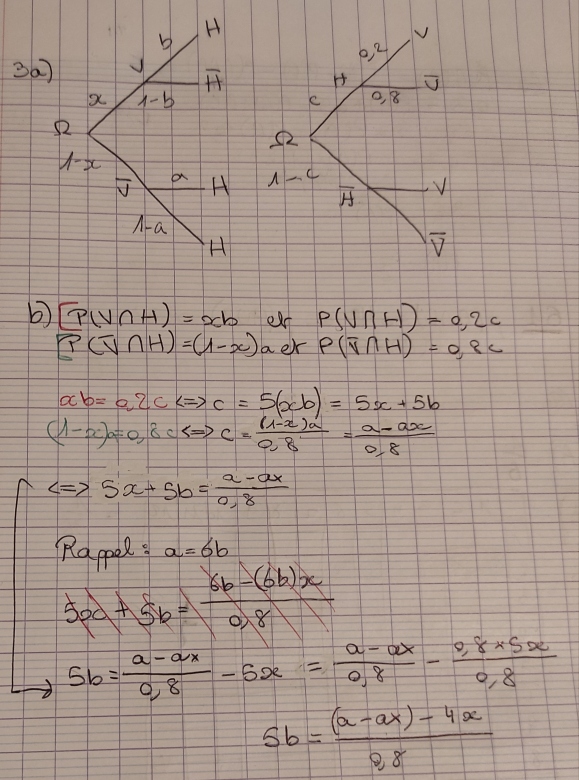 3a)
b H
V H̅
x 1-b
Ω
1-x a
V̅ H
1-a
H
0,2 V
H V̅
c 0,8
Ω
1-c
H̅ V
V̅
b) [P(V∩H) = xb et P(V∩H) = 0,2c
[P(V̅∩H) = (1-x)a et P(V̅∩H) = 0,8c
xb = 0,2c <=> c = 5(xb) = 5x + 5b
(1-x)a = 0,8c <=> c = (1-x)a/0,8 = a-ax/0,8
<=> 5x + 5b = a-ax/0,8
Rappel : a = 6b
5x + 5b = 6b-(6b)x/0,8
5b = a-ax/0,8 - 5x = a-ax/0,8 - 0,8×5x/0,8
5b = (a-ax)-4x/0,8